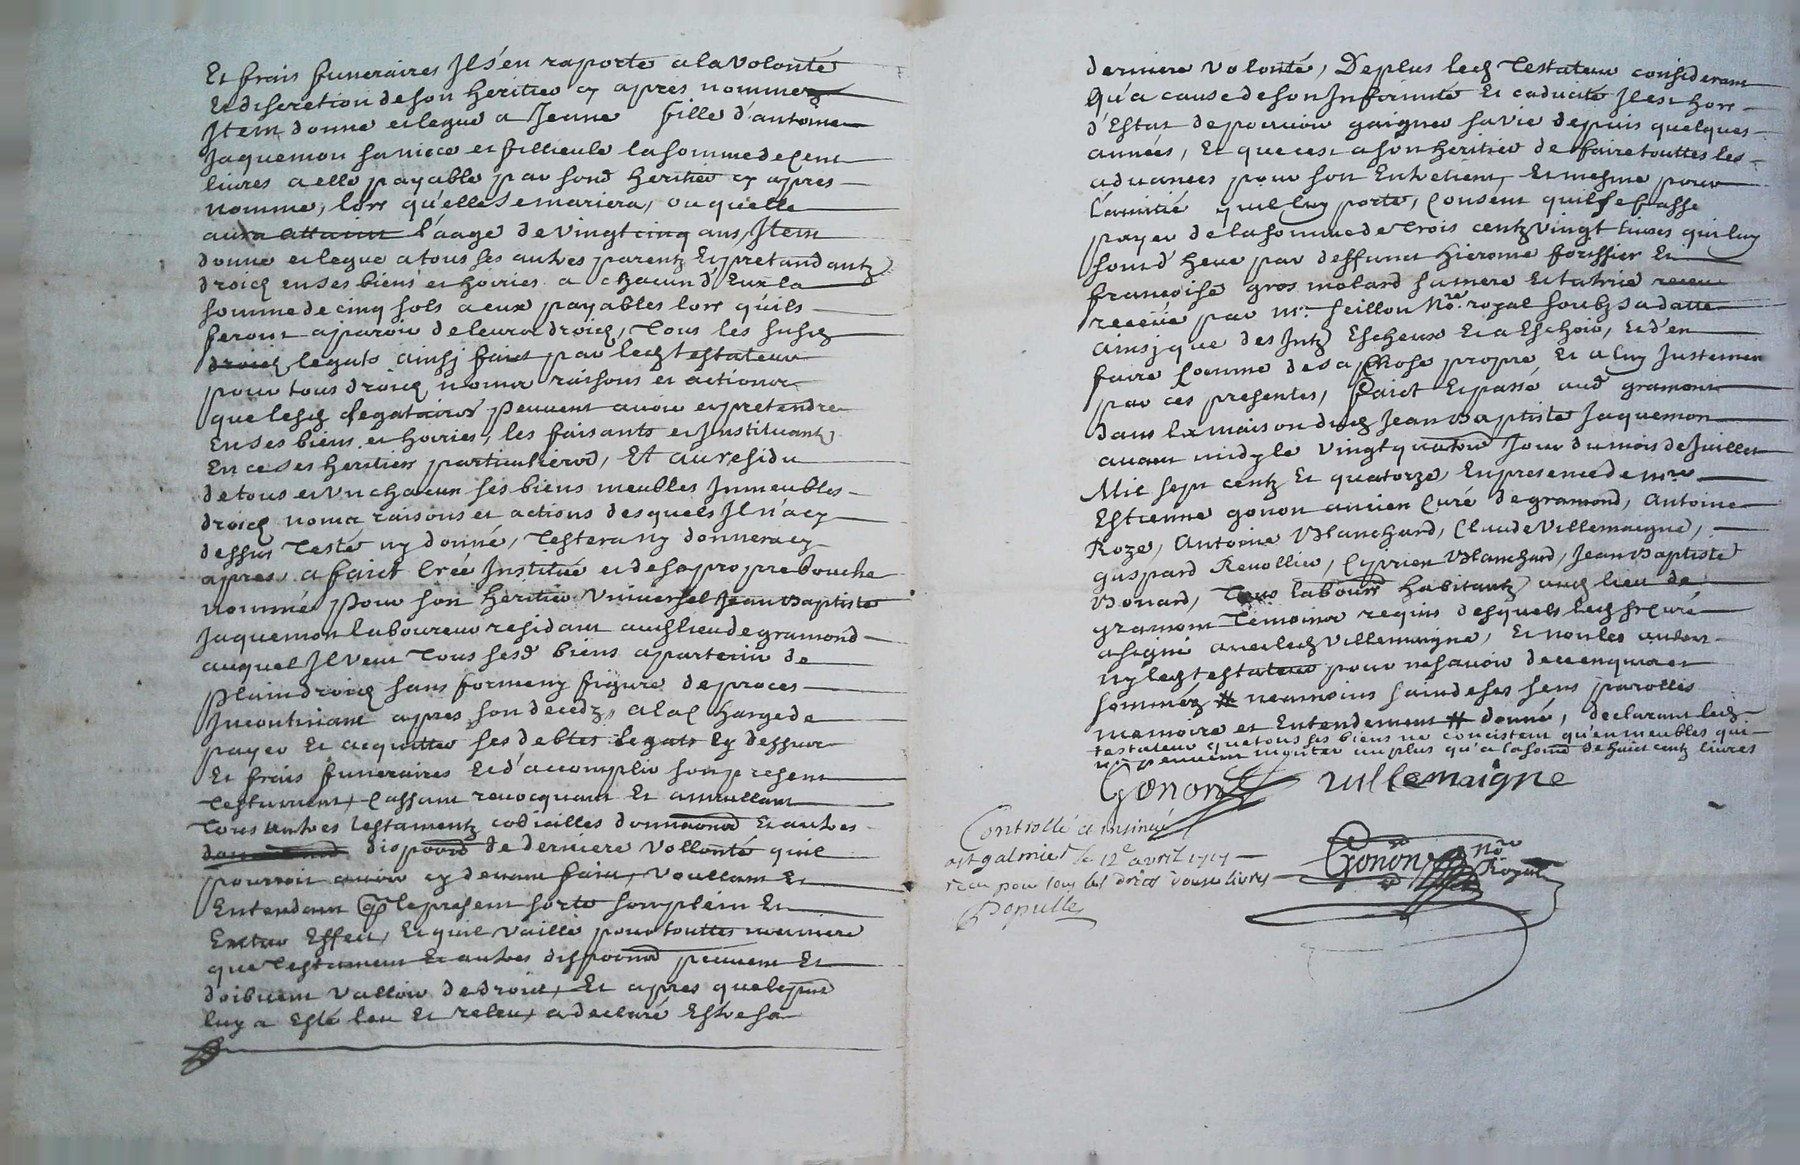 Et frais funeraires Il s'en raporte a la volonté
Et discretion de son heritier cy apres nommer
Item donne et legue a Jeune fille d'antoine
Jaquemon sa niece et fillieule la somme de Cent
livres a elle payable par sond heritier cy apres
nommé, lors qu'elle se mariera, ou quelle
aura attaint l'aage de vingt cinq ans, Item
donne et legue a tous ses autres parentz Et pretandantz
droicq en ses biens et hoiries a chacun d'Eux la
somme de cinq sols a eux payables lors qu'ils
feront aparoir de leurs droicq, Tous les susd
droicq legats ainsj faits par led testateur
pour tous droicq noms raisons et actions
que lesd legataires peuvent avoir et pretendre
En ses biens et hoiries, les faisants et Instituantz
En ce ses heritiers particuliers, Et au residu
de tous et un chacun ses biens meubles Inmeubles
droicq noms raisons et actions desquels Il n'a cy
dessus Testé ny donné, Testera ny donnera cy
apres, a faict Créé Institué et de sa propre bouche
nommé pour son heritier universel Jean Baptiste
Jaquemon laboureur residant aud lieu de gramond
auquel Il veut Tous sesd biens apartenir de
plain droicq sans forme ny figure de proces
Incontinant apres son decedz, a la Charge de
payer Et acquitter ses debtes legats cy dessus
Et frais funeraires Et d'accomplir son present
Testament, Cassant revocquant Et annullant
Tous autres Testamentz codicilles donnaons Et autres
dispoons de derniere vollonté quil
pourroit avoir cy devant faits, voullant Et
Entendant q le present sorte son plein Et
Entier Effect, Et quil vaille pour touttes meuniere
que Testament Et autres dispoons peuvent Et
doibvent valloir de droict, Et apres que le pnt
luy a Esté leu Et releu, a declaré Estre sa
derniere volonté, De plus led Testateur considerant
Qu'a cause de son Infirmité Et caducité Il est hors
d'Estat de pouvoir gaigner sa vie depuis quelques
années, Et que cest a son heritier de faire touttes les
advances pour son Entretient, Et mesme pour
l'amitié quil luy porte, Consent quil se fasse
payer de la somme de Trois centz vingt livres qui luy
sont d'heue par deffunct hierome forissier Et
francoise gros molard sa mere Et tutrice
receüe par Mr. feillon Nore. royal soubz sa datte
ainsj que des Intz Escheux Et a Eschoir, Et d'en
faire Comme de sa Chose propre Et a luy Justemen
par ces presentes, Faict Et passé aud gramont
dans la maison dud Jean Baptiste Jaquemon
avant midy le vingt quatre Jour du mois de Juillet
Mil sept centz Et quatorze, En presence de mre
Estienne gonon ancien Curé de gramond, Antoine
Roze, Antoine Blanchard, Claude Villemaigne,
gaspard Revollier, Ciprien Blanchard, Jean Baptiste
Bonard, Tous labours habitantz aud lieu de
gramont Temoins requis desquels led sr Curé
a signé avec led Villemaigne, Et non les autres
Ny led testateur pour ne savoir de ce enquis et
sommez # neamoins sain de ses sens parolles
memoire et Entendement # donné, declarant led
testateur que tous ses biens ne concistent qu'en meubles qui
ne peuvent monter au plus qu'a la some de huict centz livres
Gonon villemaigne
Controllé et insinué
a st galmier le 12e avril 1717
receu pour tous les droicts douse livres
Populle
Gonon nore Royal